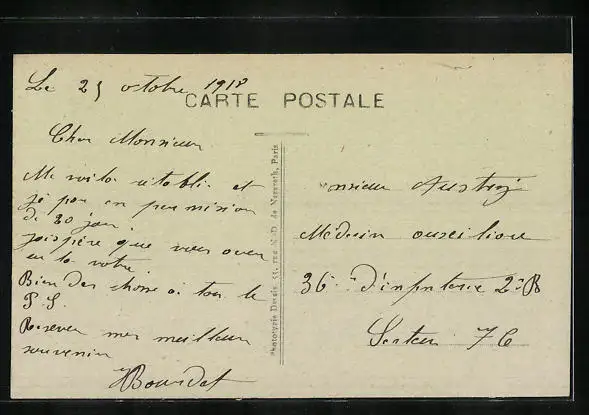 Le 25 octobre 1918
CARTE POSTALE
Cher Monsieur
Me voila établie et
je par en permission
de 20 jour.
j'aispère que vous avez
eu la votre.
Bien des chose a tous le
P.S.
Recever mes meilleur
souvenir
HBourdat
Phototypie Desaix, 55, rue N.-D. de Nazareth, Paris
onsieur
Médecin auxiliaire
36e d'infanterie 2e B
Secteur 76